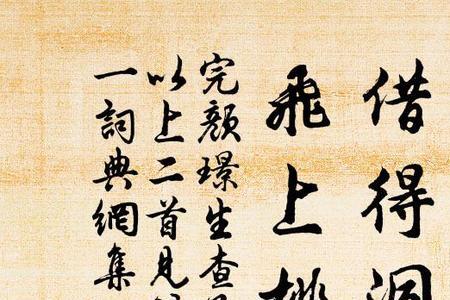 借得洞
飛上桃
完顏璟生查
以上二首見
一詞典網集